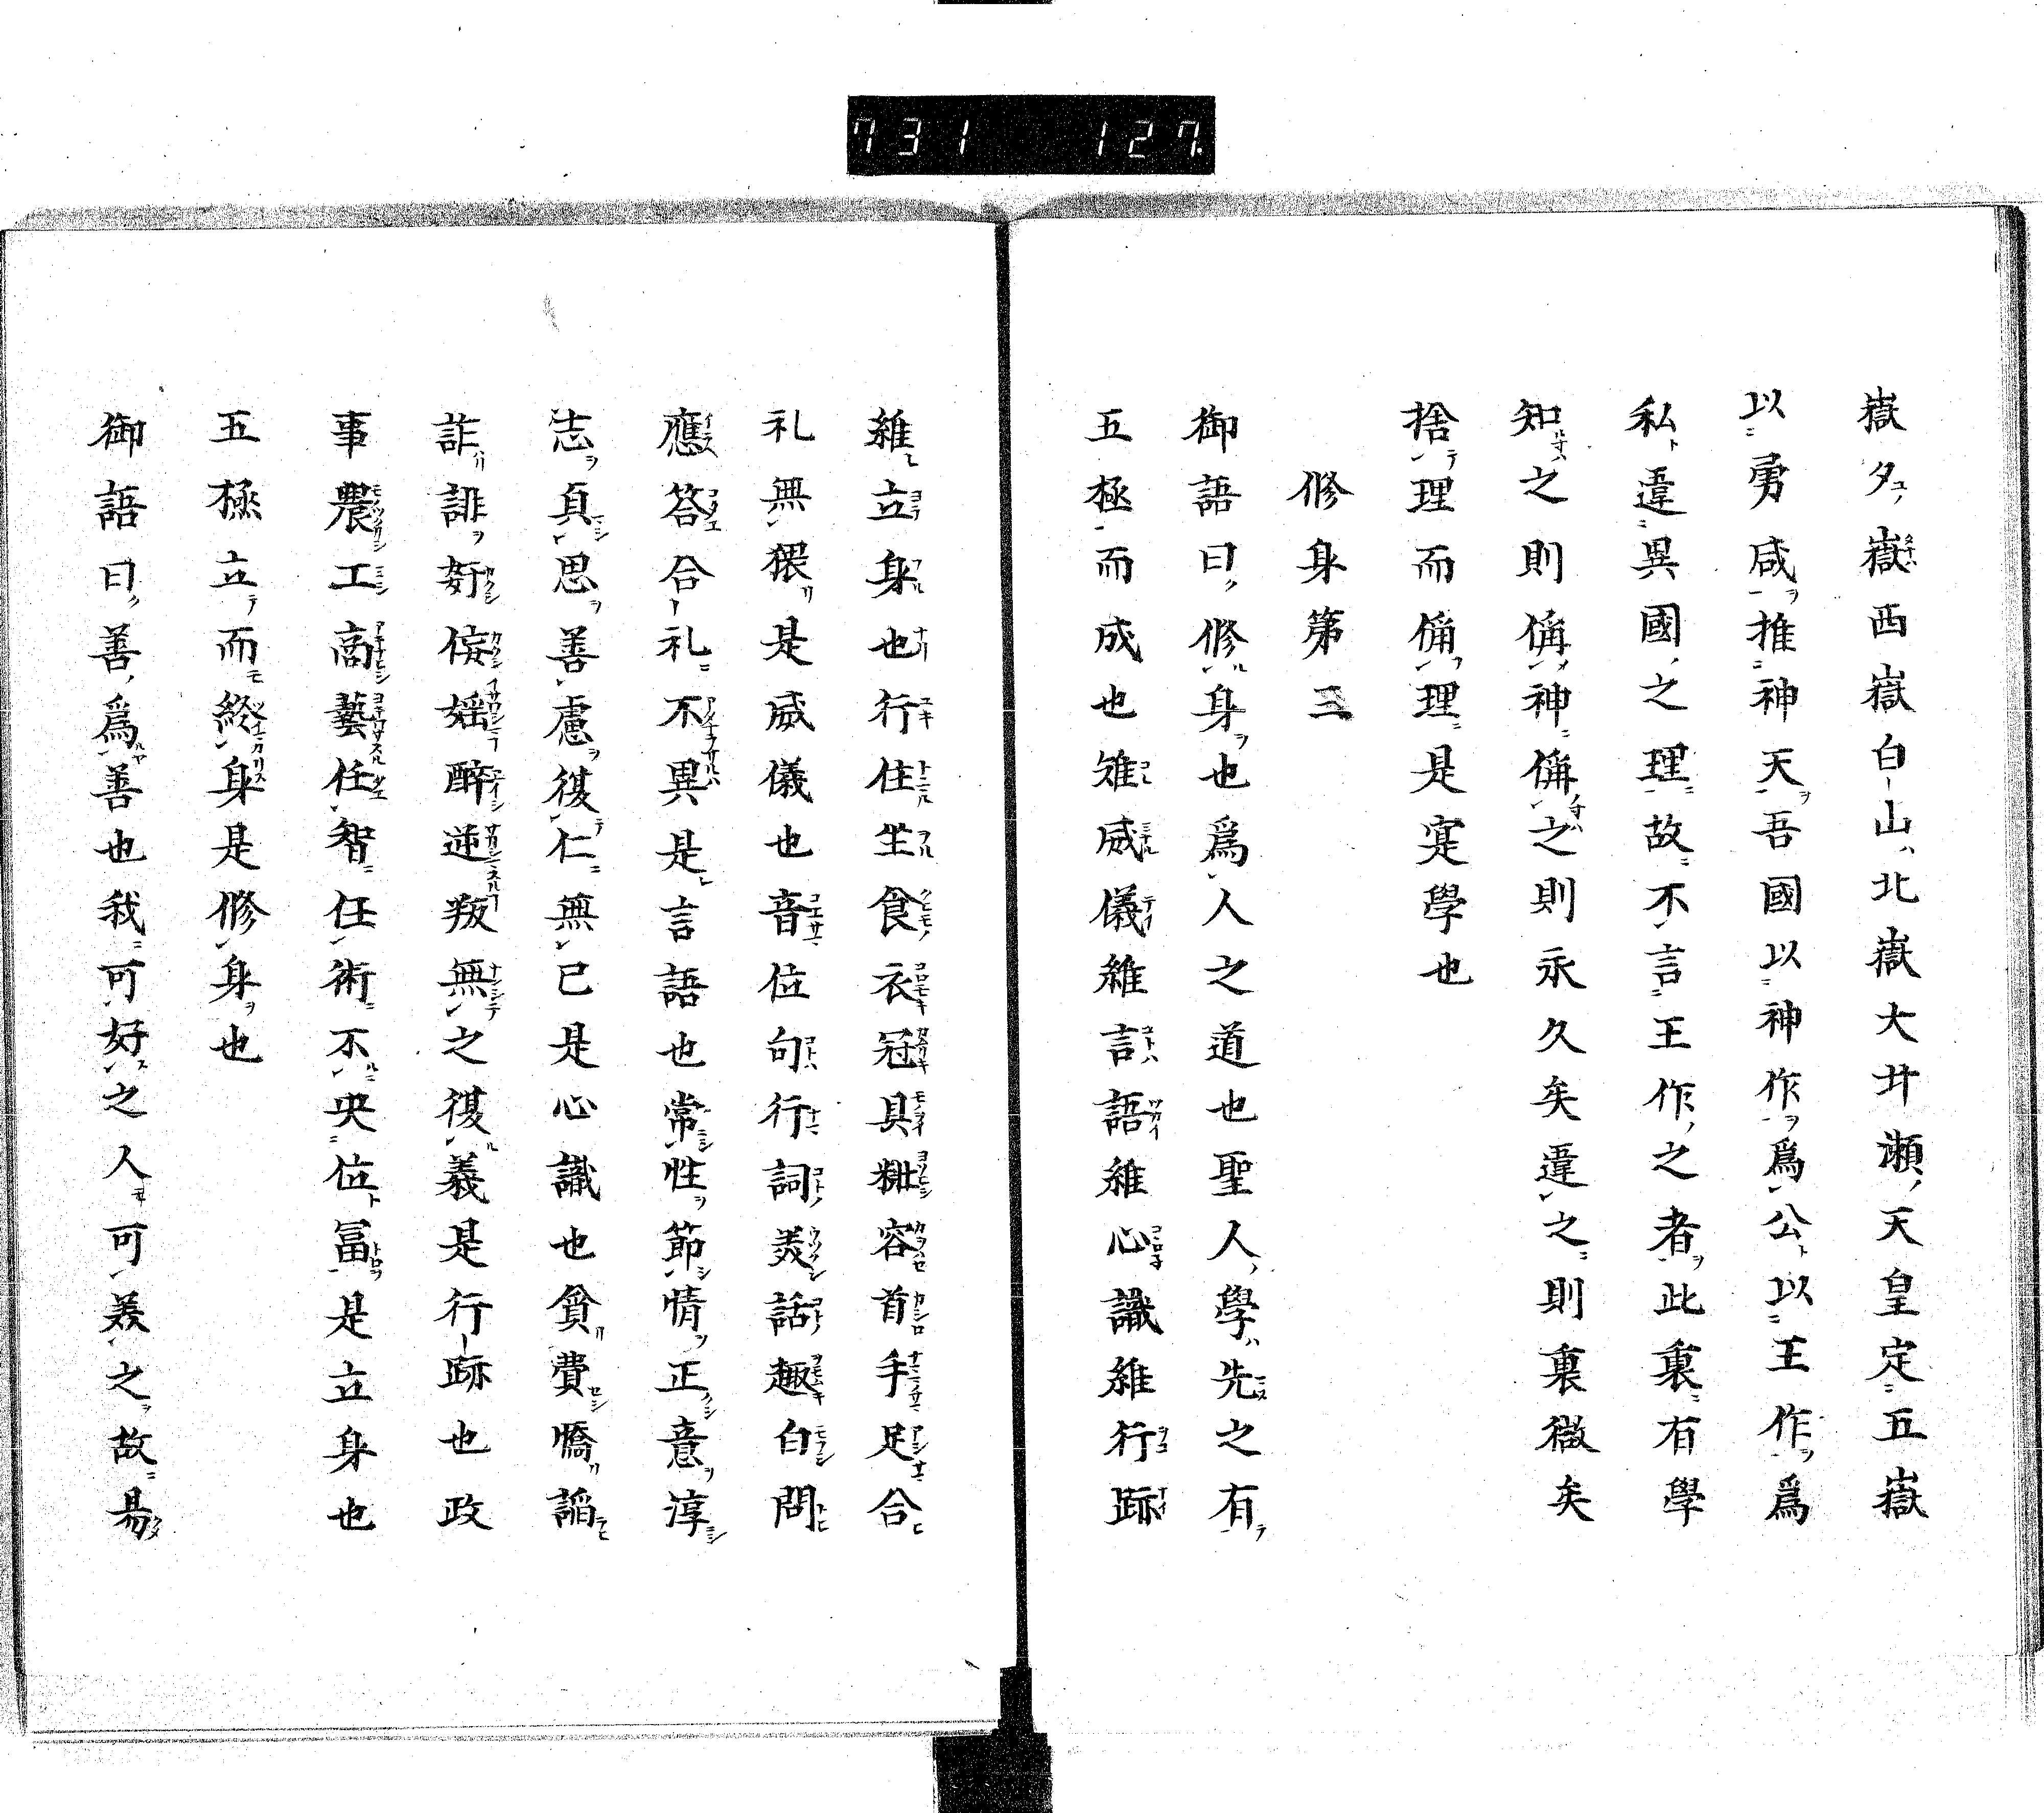 731 127
嶽夕嶽西嶽白山北嶽大井瀬天皇定五嶽
以勇咸推神天吾國以神作爲公以王作爲
私違異國之理故不言王作之者此裏有學
知之則偁神偁之則永久矣違之則裏微矣
捨理而偁理是寔學也
修身第三
御語曰修身也爲人之道也聖人學先之有
五極而成也雉威儀維言語維心識維行跡
維立身也行住坐食衣冠具粧容首手足合
礼無猥是威儀也音位句行詞美話趣白問
應答合礼不異是言語也常性節情正意淳
志貞思善慮復仁無已是心識也貧費憍謟
詐誹奸侫婬醉逆叛無之復義是行跡也政
事農工商藝任智任術不央位冨是立身也
五極立而終身是修身也
御語曰善爲善也我可好之人可羨之故易